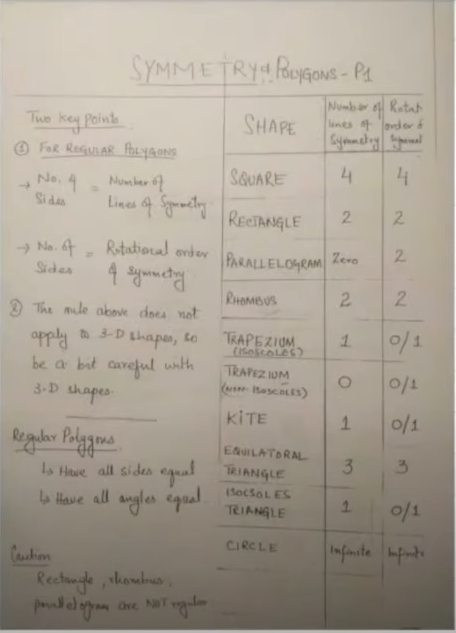 SYMMETRY & POLYGONS - P1
Two key points
① FOR REGULAR POLYGONS
→ No. of Sides = Number of Lines of Symmetry
→ No. of Sides = Rotational order of Symmetry
② The rule above does not
apply to 3-D shapes, so
be a bit careful with
3-D shapes.
Regular Polygons
↳ Have all sides equal
↳ Have all angles equal
Caution
Rectangle, rhombus,
parallelogram are NOT regular
SHAPE Number of lines of Symmetry Rotat order of
SQUARE 4 4
RECTANGLE 2 2
PARALLELOGRAM Zero 2
RHOMBUS 2 2
TRAPEZIUM 1 0/1
(ISOSCOLES)
TRAPEZIUM 0 0/1
(NON-ISOSCOLES)
KITE 1 0/1
EQUILATORAL
TRIANGLE 3 3
ISOCSOLES
TRIANGLE 1 0/1
CIRCLE Infinite Infinite